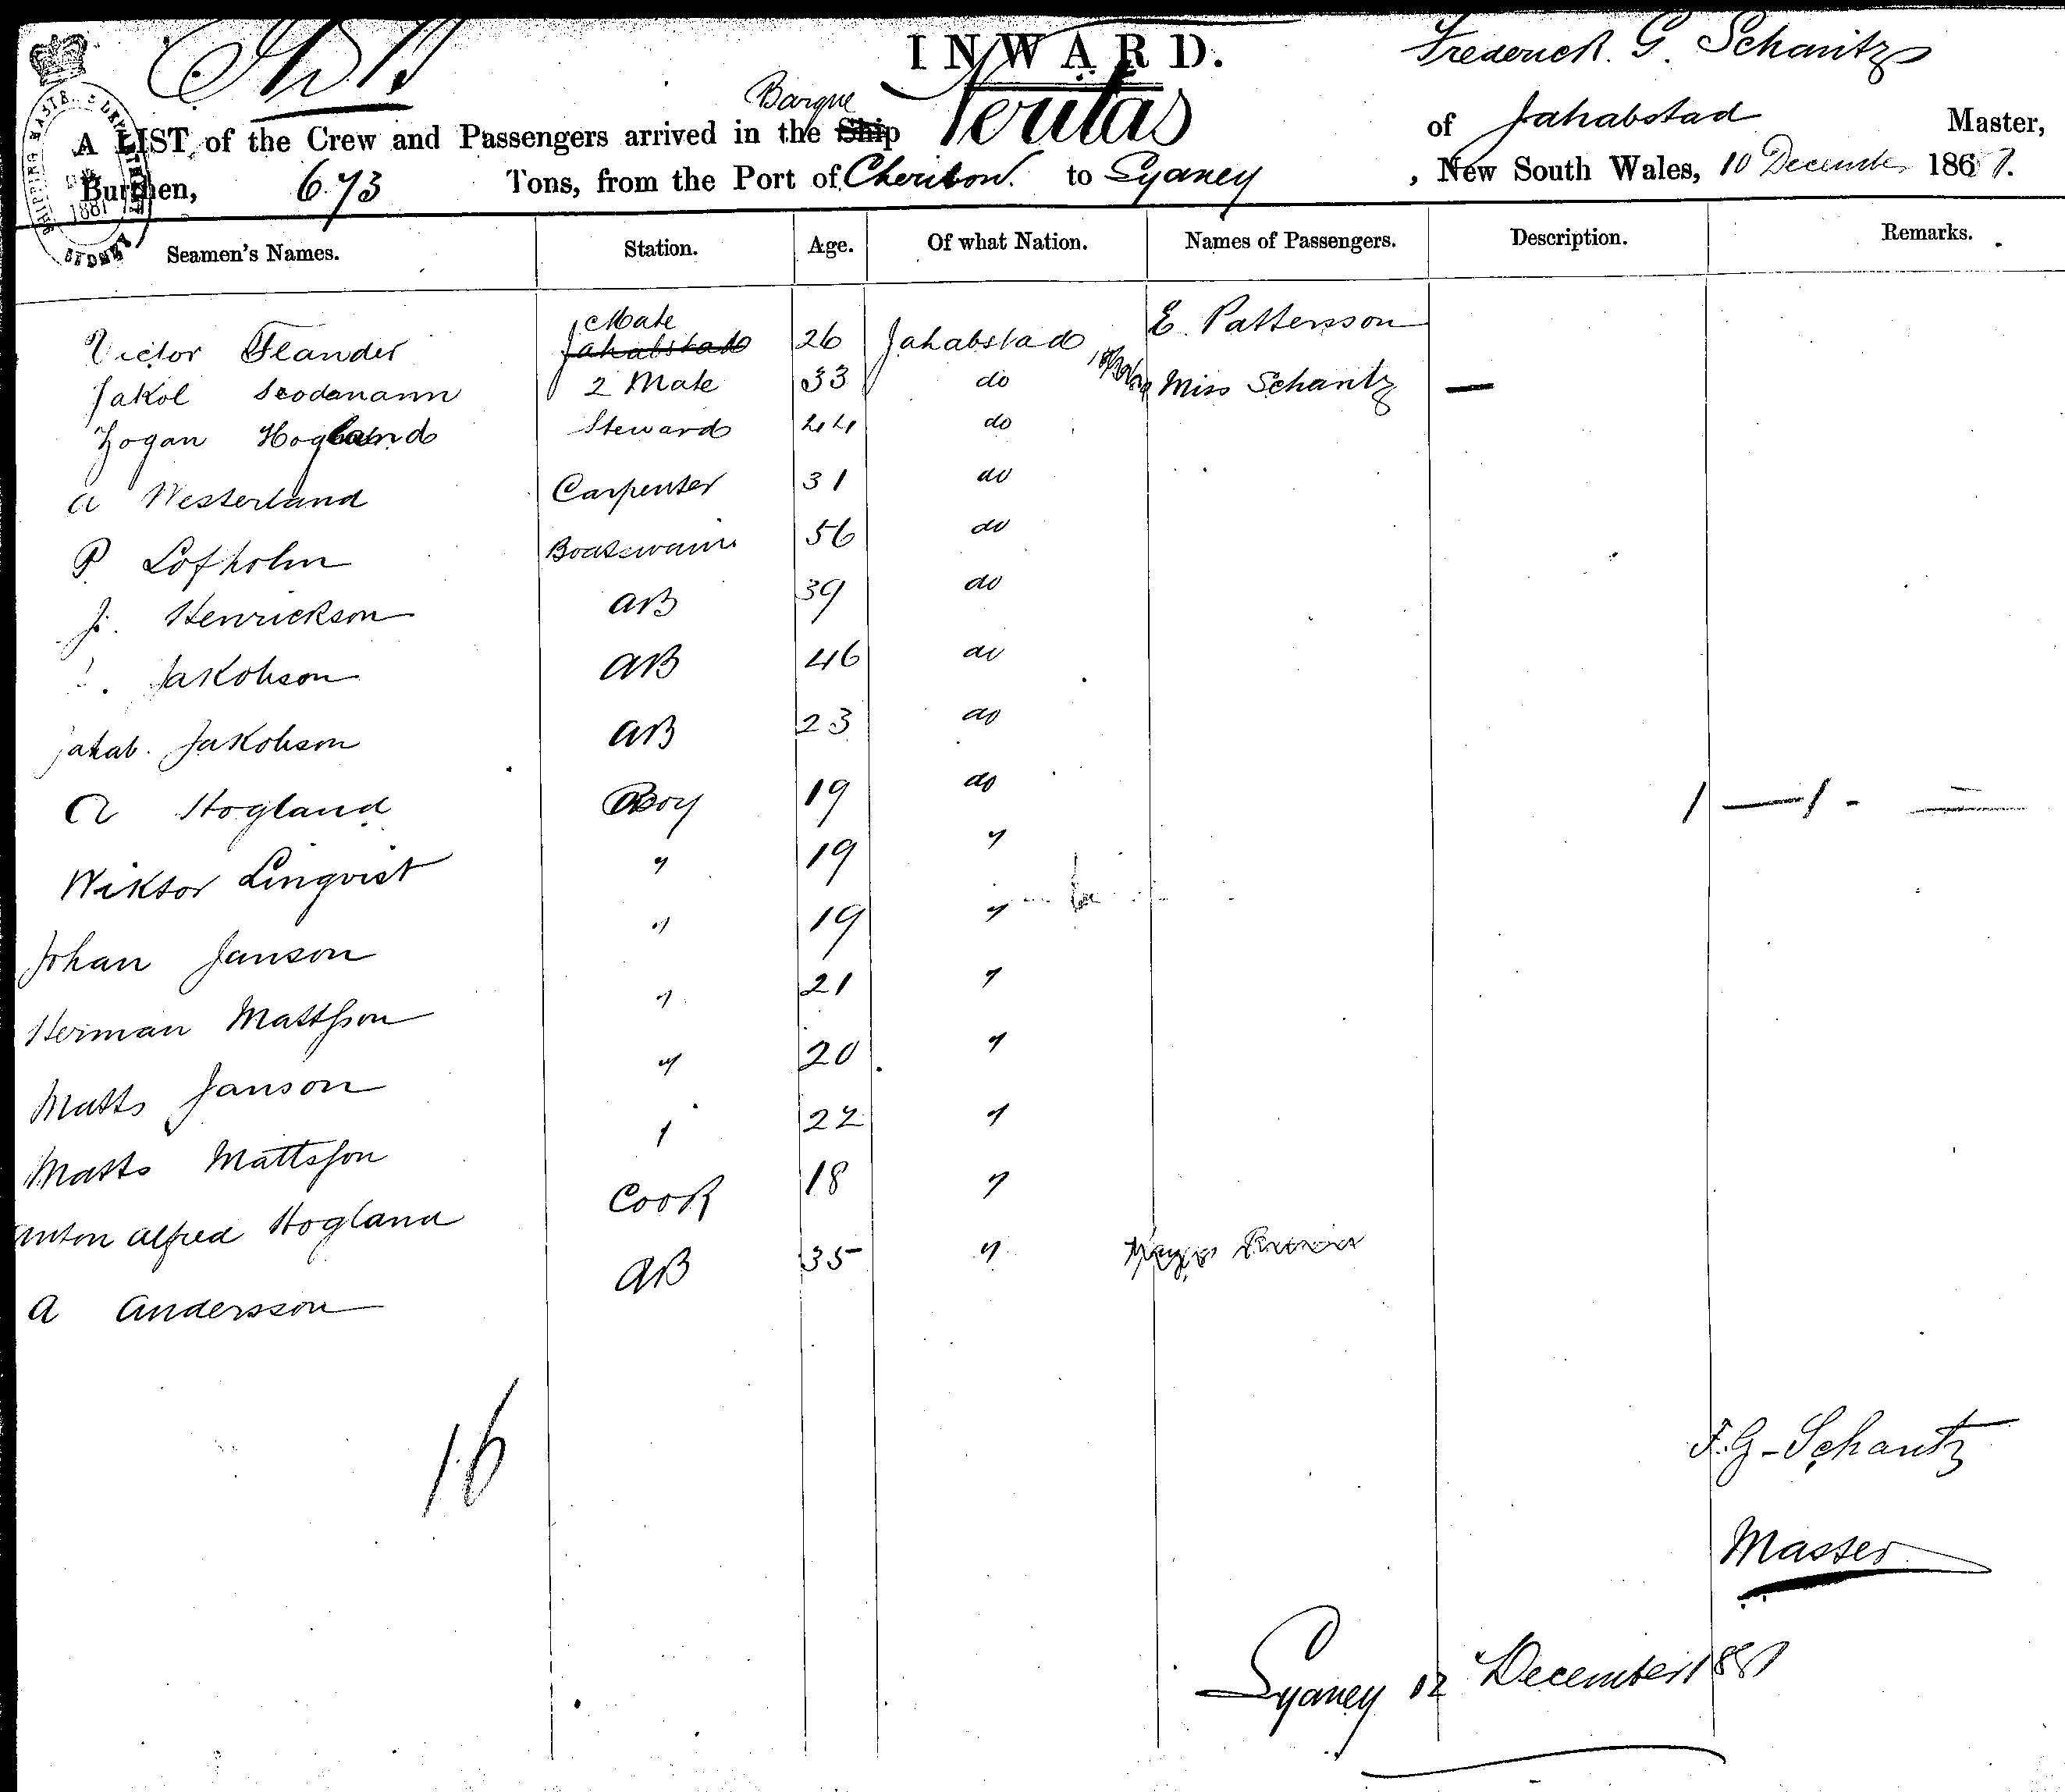 INWARD.
Frederick. G. Schantz
A LIST of the Crew and Passengers arrived in the Ship Barque Veritas of Jahabstad Master,
Burthen, 673 Tons, from the Port of Cheribon. to Sydney, New South Wales, 10 December 1867.
SHIPPING MASTR.'S DEPARTMENT
1881
SYDNEY
Seamen's Names. Station. Age. Of what Nation. Names of Passengers. Description. Remarks.
Victor Flander Jahabstad Mate 26 Jahabstad E. Pattersson
Jakol 2 Mate 33 do Miss Schantz —
Hogland Steward 44 do
A Westerland Carpenter 31 do
P Lofholm Boatswain 56 do
J. Henrickson AB 39 do
Jakobson AB 46 do
Jahab. Jakobson AB 23 do
A Hogland Boy 19 do
Wiktor Linqvist " 19 "
Johan Janson " 19 "
Herman Mattsson " 21 "
Matts Janson " 20 "
Matts Mattsson " 22 "
Anton Alfred Hogland Cook 18 "
A Andersson AB 35 "
16
F. G. Schantz
Master
Sydney 12 December 1881